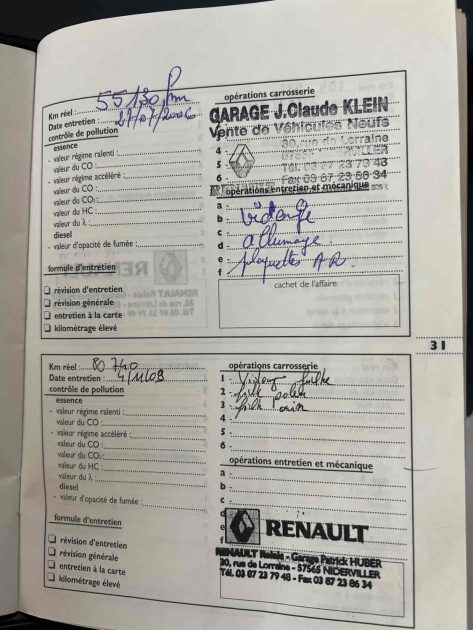 Km réel : 55130 Km
Date entretien : 27/07/2006
contrôle de pollution
essence
- valeur régime ralenti :
- valeur du CO :
- valeur régime accéléré :
- valeur du CO :
- valeur du CO₂ :
- valeur du HC :
- valeur du λ :
diesel
- valeur d'opacité de fumée :
formule d'entretien
révision d'entretien
révision générale
entretien à la carte
kilométrage élevé
opérations carrosserie
GARAGE J.Claude KLEIN
Vente de Véhicules Neufs
30, rue de Lorraine
4 -
5
Tél. 03 87 23 79 48
6
Fax 03 87 23 86 34
RENAULT
opérations entretien et mécanique
a -
b - vidange
c -
d - allumage
e - plaquettes AR
f
cachet de l'affaire
RENAULT
31
Km réel : 80 740
Date entretien : 4/11/09
contrôle de pollution
essence
- valeur régime ralenti :
- valeur du CO :
- valeur régime accéléré :
- valeur du CO :
- valeur du CO₂ :
- valeur du HC :
- valeur du λ :
diesel
- valeur d'opacité de fumée :
formule d'entretien
révision d'entretien
révision générale
entretien à la carte
kilométrage élevé
opérations carrosserie
1 -
2 -
3 -
4 -
5 -
6 -
opérations entretien et mécanique
a -
b -
c -
d
e
f
RENAULT
RENAULT Relais - Garage Patrick HUBER
30, rue de Lorraine - 57565 NIDERVILLER
Tél. 03 87 23 79 48 - Fax 03 87 23 86 34